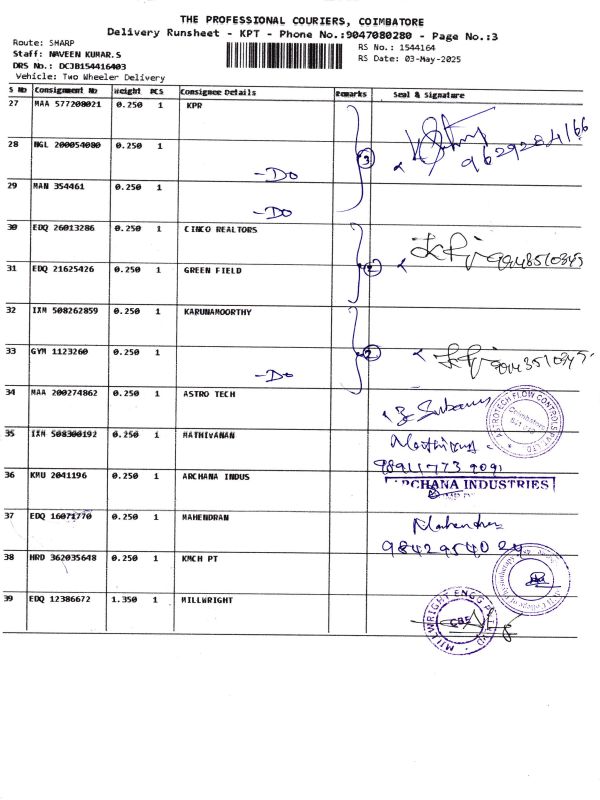 THE PROFESSIONAL COURIERS, COIMBATORE
Delivery Runsheet - KPT - Phone No.:9047080280 - Page No.:3
Route: SHARP
Staff: NAVEEN KUMAR.S
DRS No.: DCJB154416403
Vehicle: Two Wheeler Delivery
RS No.: 1544164
RS Date: 03-May-2025
S No Consignment No Weight PCS Consignee Details Remarks Seal & Signature
27 MAA 577208021 0.250 1 KPR
28 NGL 200054080 0.250 1 -Do
3
9629284166
29 MAN 354461 0.250 1 -Do
30 EDQ 26013286 0.250 1 CINCO REALTORS
31 EDQ 21625426 0.250 1 GREEN FIELD
2
32 IXM 508262859 0.250 1 KARUNAMOORTHY
33 GYM 1123260 0.250 1 -Do
2
34 MAA 200274862 0.250 1 ASTRO TECH
ASTROTECH FLOW CONTROLS PVT LTD
Coimbatore
35 IXM 508300192 0.250 1 MATHIVANAN
36 KMU 2041196 0.250 1 ARCHANA INDUS
ARCHANA INDUSTRIES
37 EDQ 16071770 0.250 1 MAHENDRAN
Mahendran
9842954029
38 HRD 362035648 0.250 1 KMCH PT
39 EDQ 12386672 1.350 1 MILLWRIGHT
MILLWRIGHT ENGG PVT LTD
CBE